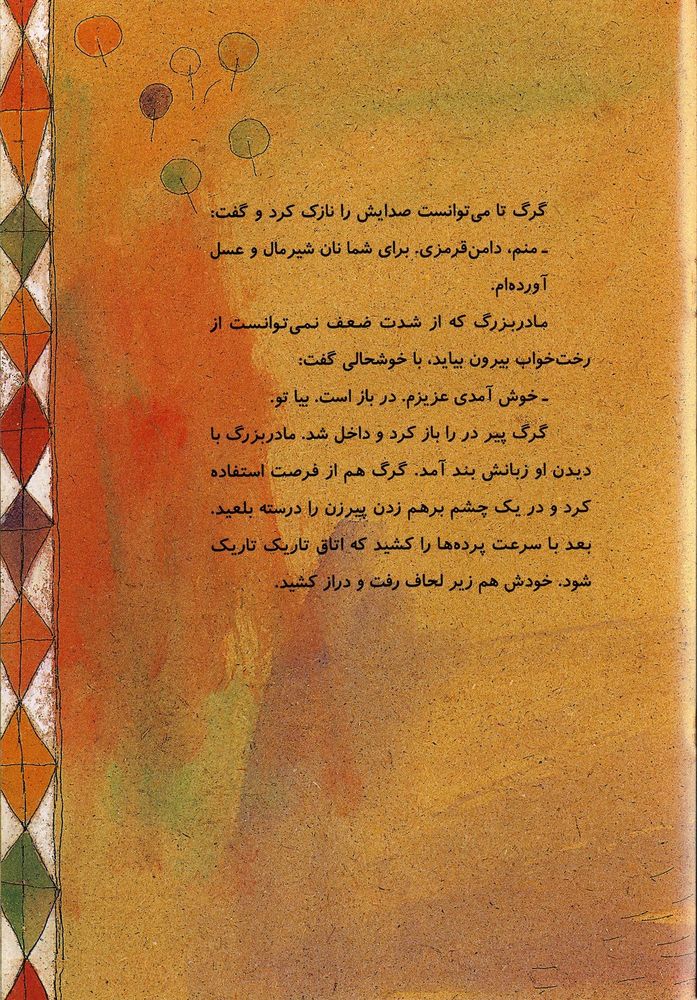 گرگ تا می‌توانست صدایش را نازک کرد و گفت:
ـ منم، دامن‌قرمزی. برای شما نان شیرمال و عسل
آورده‌ام.
مادربزرگ که از شدت ضعف نمی‌توانست از
رخت‌خواب بیرون بیاید، با خوشحالی گفت:
ـ خوش آمدی عزیزم. در باز است. بیا تو.
گرگ پیر در را باز کرد و داخل شد. مادربزرگ با
دیدن او زبانش بند آمد. گرگ هم از فرصت استفاده
کرد و در یک چشم برهم زدن پیرزن را درسته بلعید.
بعد با سرعت پرده‌ها را کشید که اتاق تاریک تاریک
شود. خودش هم زیر لحاف رفت و دراز کشید.